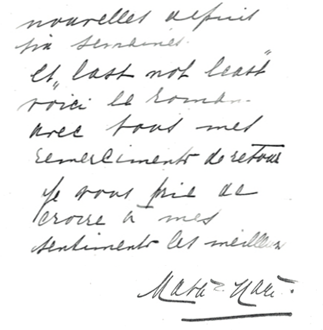 nouvelles depuis
six semaines.
Et "last not least"
voici le roman.
avec tous mes
remerciments de retour
je vous prie de
croire à mes
sentiments les meilleurs
Mata-Hari.